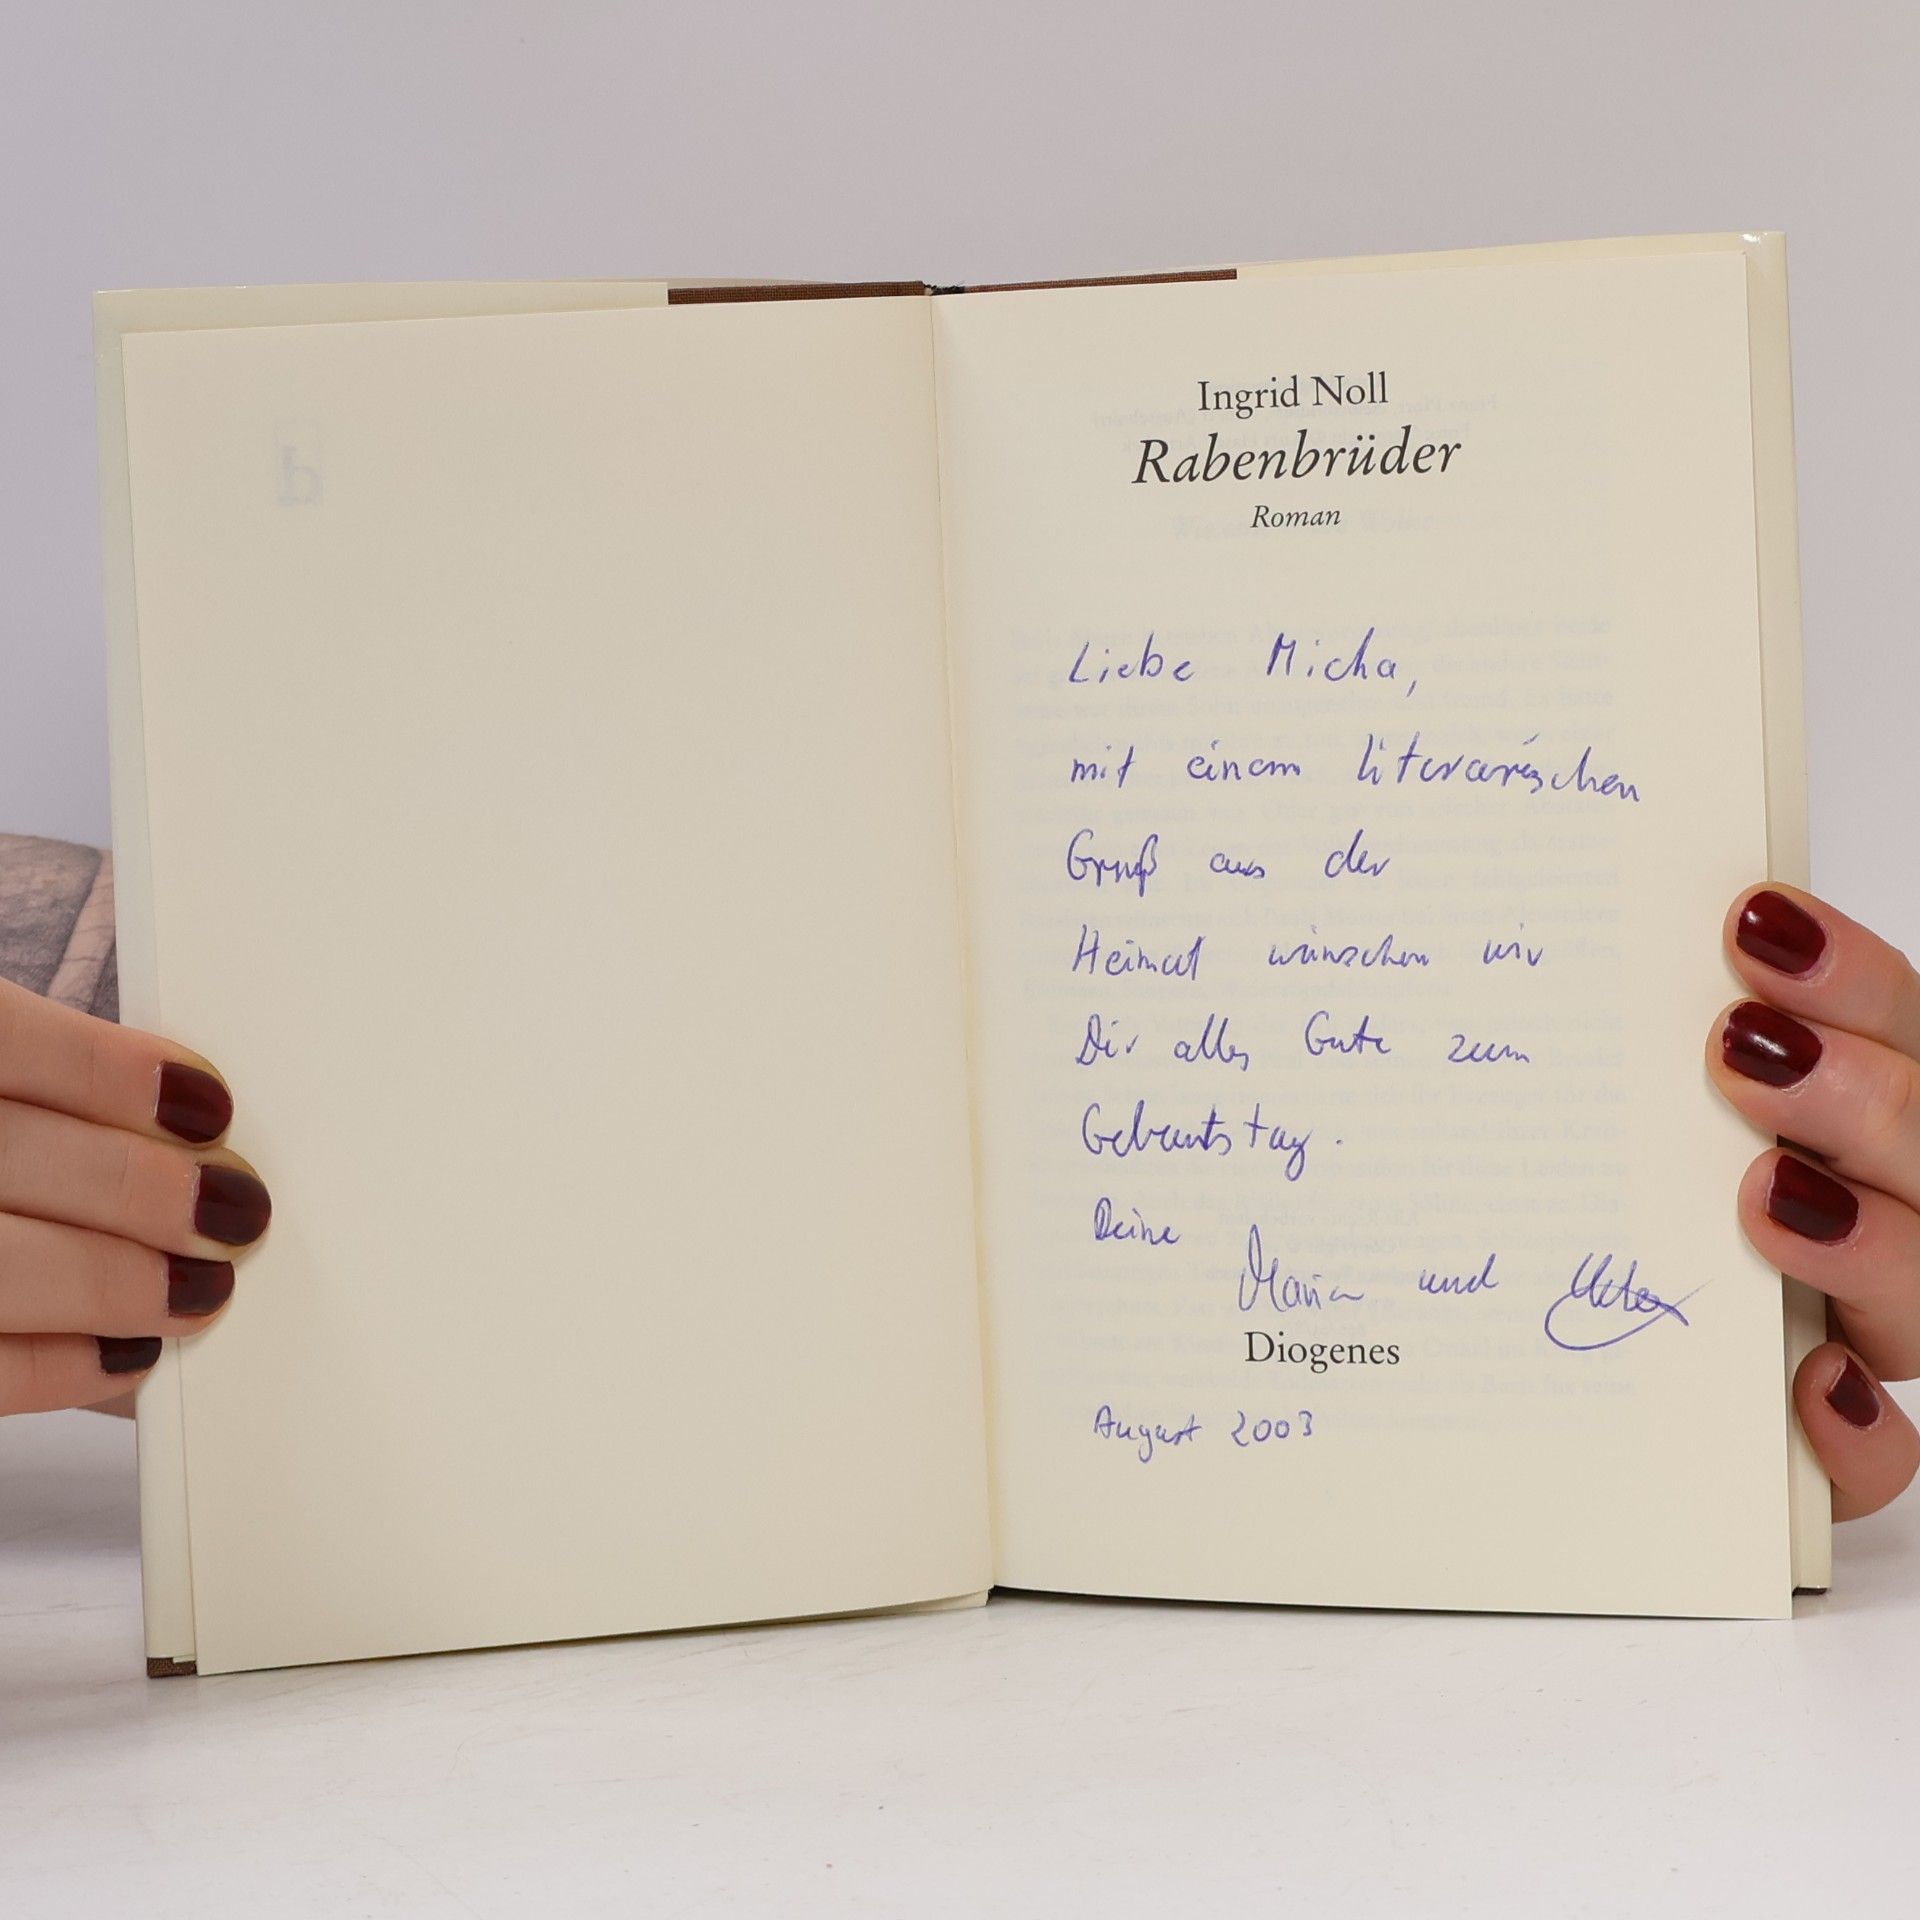 Ingrid Noll
Rabenbrüder
Roman
Liebe Micha,
mit einem literarischen
Gruß aus der
Heimat wünschen wir
Dir alles Gute zum
Geburtstag.
Deine
Maria und
Diogenes
August 2003
d